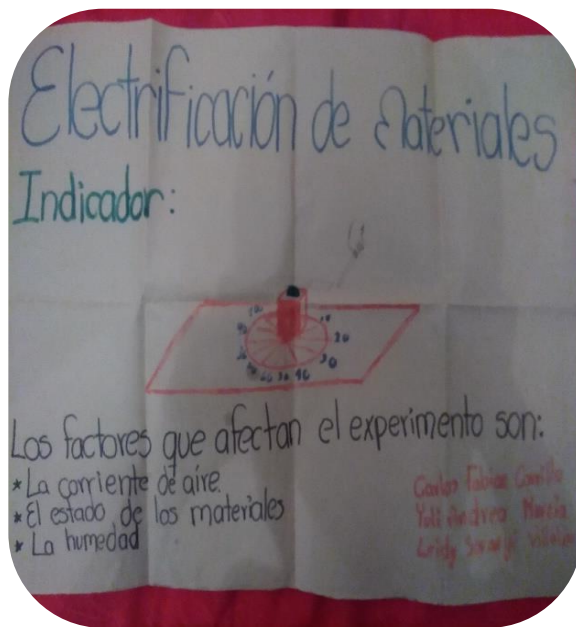 Electrificación de Materiales
Indicador:
10
20
30
40
Los factores que afectan el experimento son:
*La corriente de aire.
*El estado de los materiales
*La humedad
Carlos Fabian
Yuli Andrea